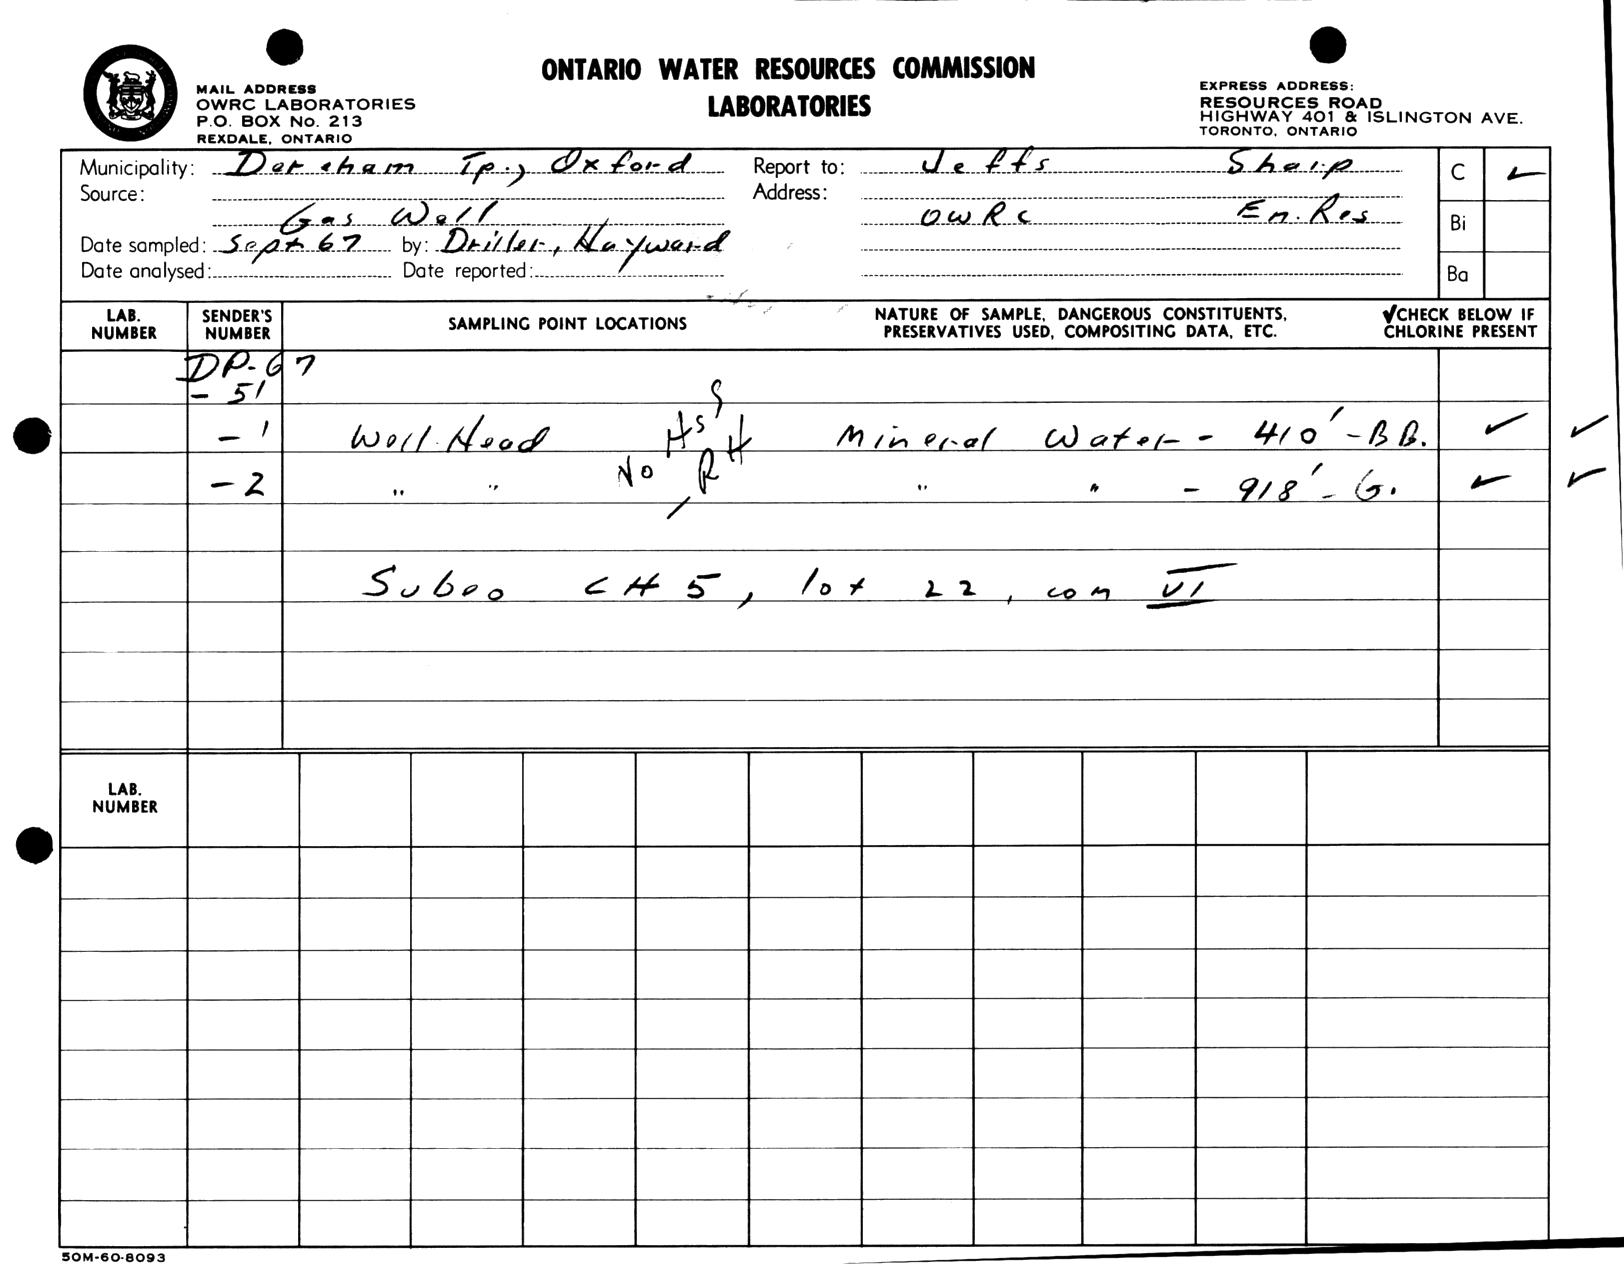 ONTARIO WATER RESOURCES COMMISSION
LABORATORIES
MAIL ADDRESS
OWRC LABORATORIES
P.O. BOX No. 213
REXDALE, ONTARIO
EXPRESS ADDRESS:
RESOURCES ROAD
HIGHWAY 401 & ISLINGTON AVE.
TORONTO, ONTARIO
Municipality: Dereham Tp., Oxford
Source:
Gas Well
Date sampled: Sept 67 by: Driller, Hayward
Date analysed: Date reported:
Report to: Jeffs Sharp
Address:
OWRC En. Res
C ✓
Bi
Ba
LAB. NUMBER SENDER'S NUMBER SAMPLING POINT LOCATIONS NATURE OF SAMPLE, DANGEROUS CONSTITUENTS, PRESERVATIVES USED, COMPOSITING DATA, ETC. ✓CHECK BELOW IF CHLORINE PRESENT
DP-67
- 51
- 1 Well Head Mineral Water - 410' - BB. ✓ ✓
- 2 " " No " " - 918' - G. ✓ ✓
Subeo CH 5, lot 22, con VI
LAB. NUMBER
50M-60-8093